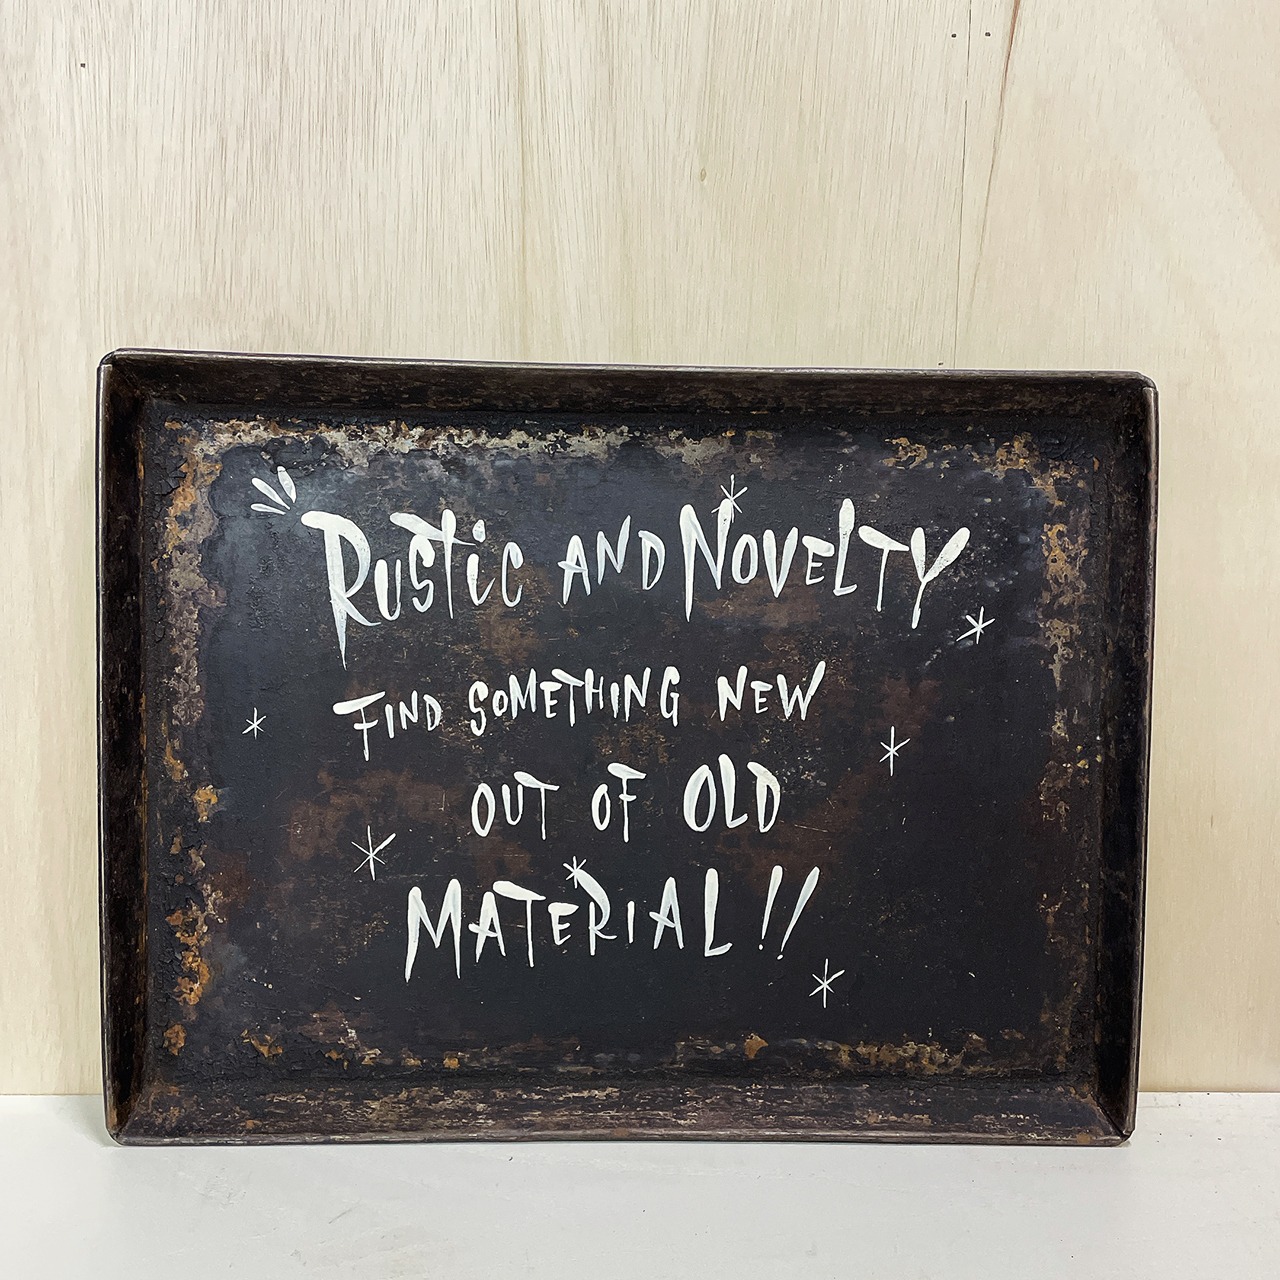 RUSTiC AND NOVELTY
FIND SOMETHING NEW
OUT OF OLD
MATERIAL!!